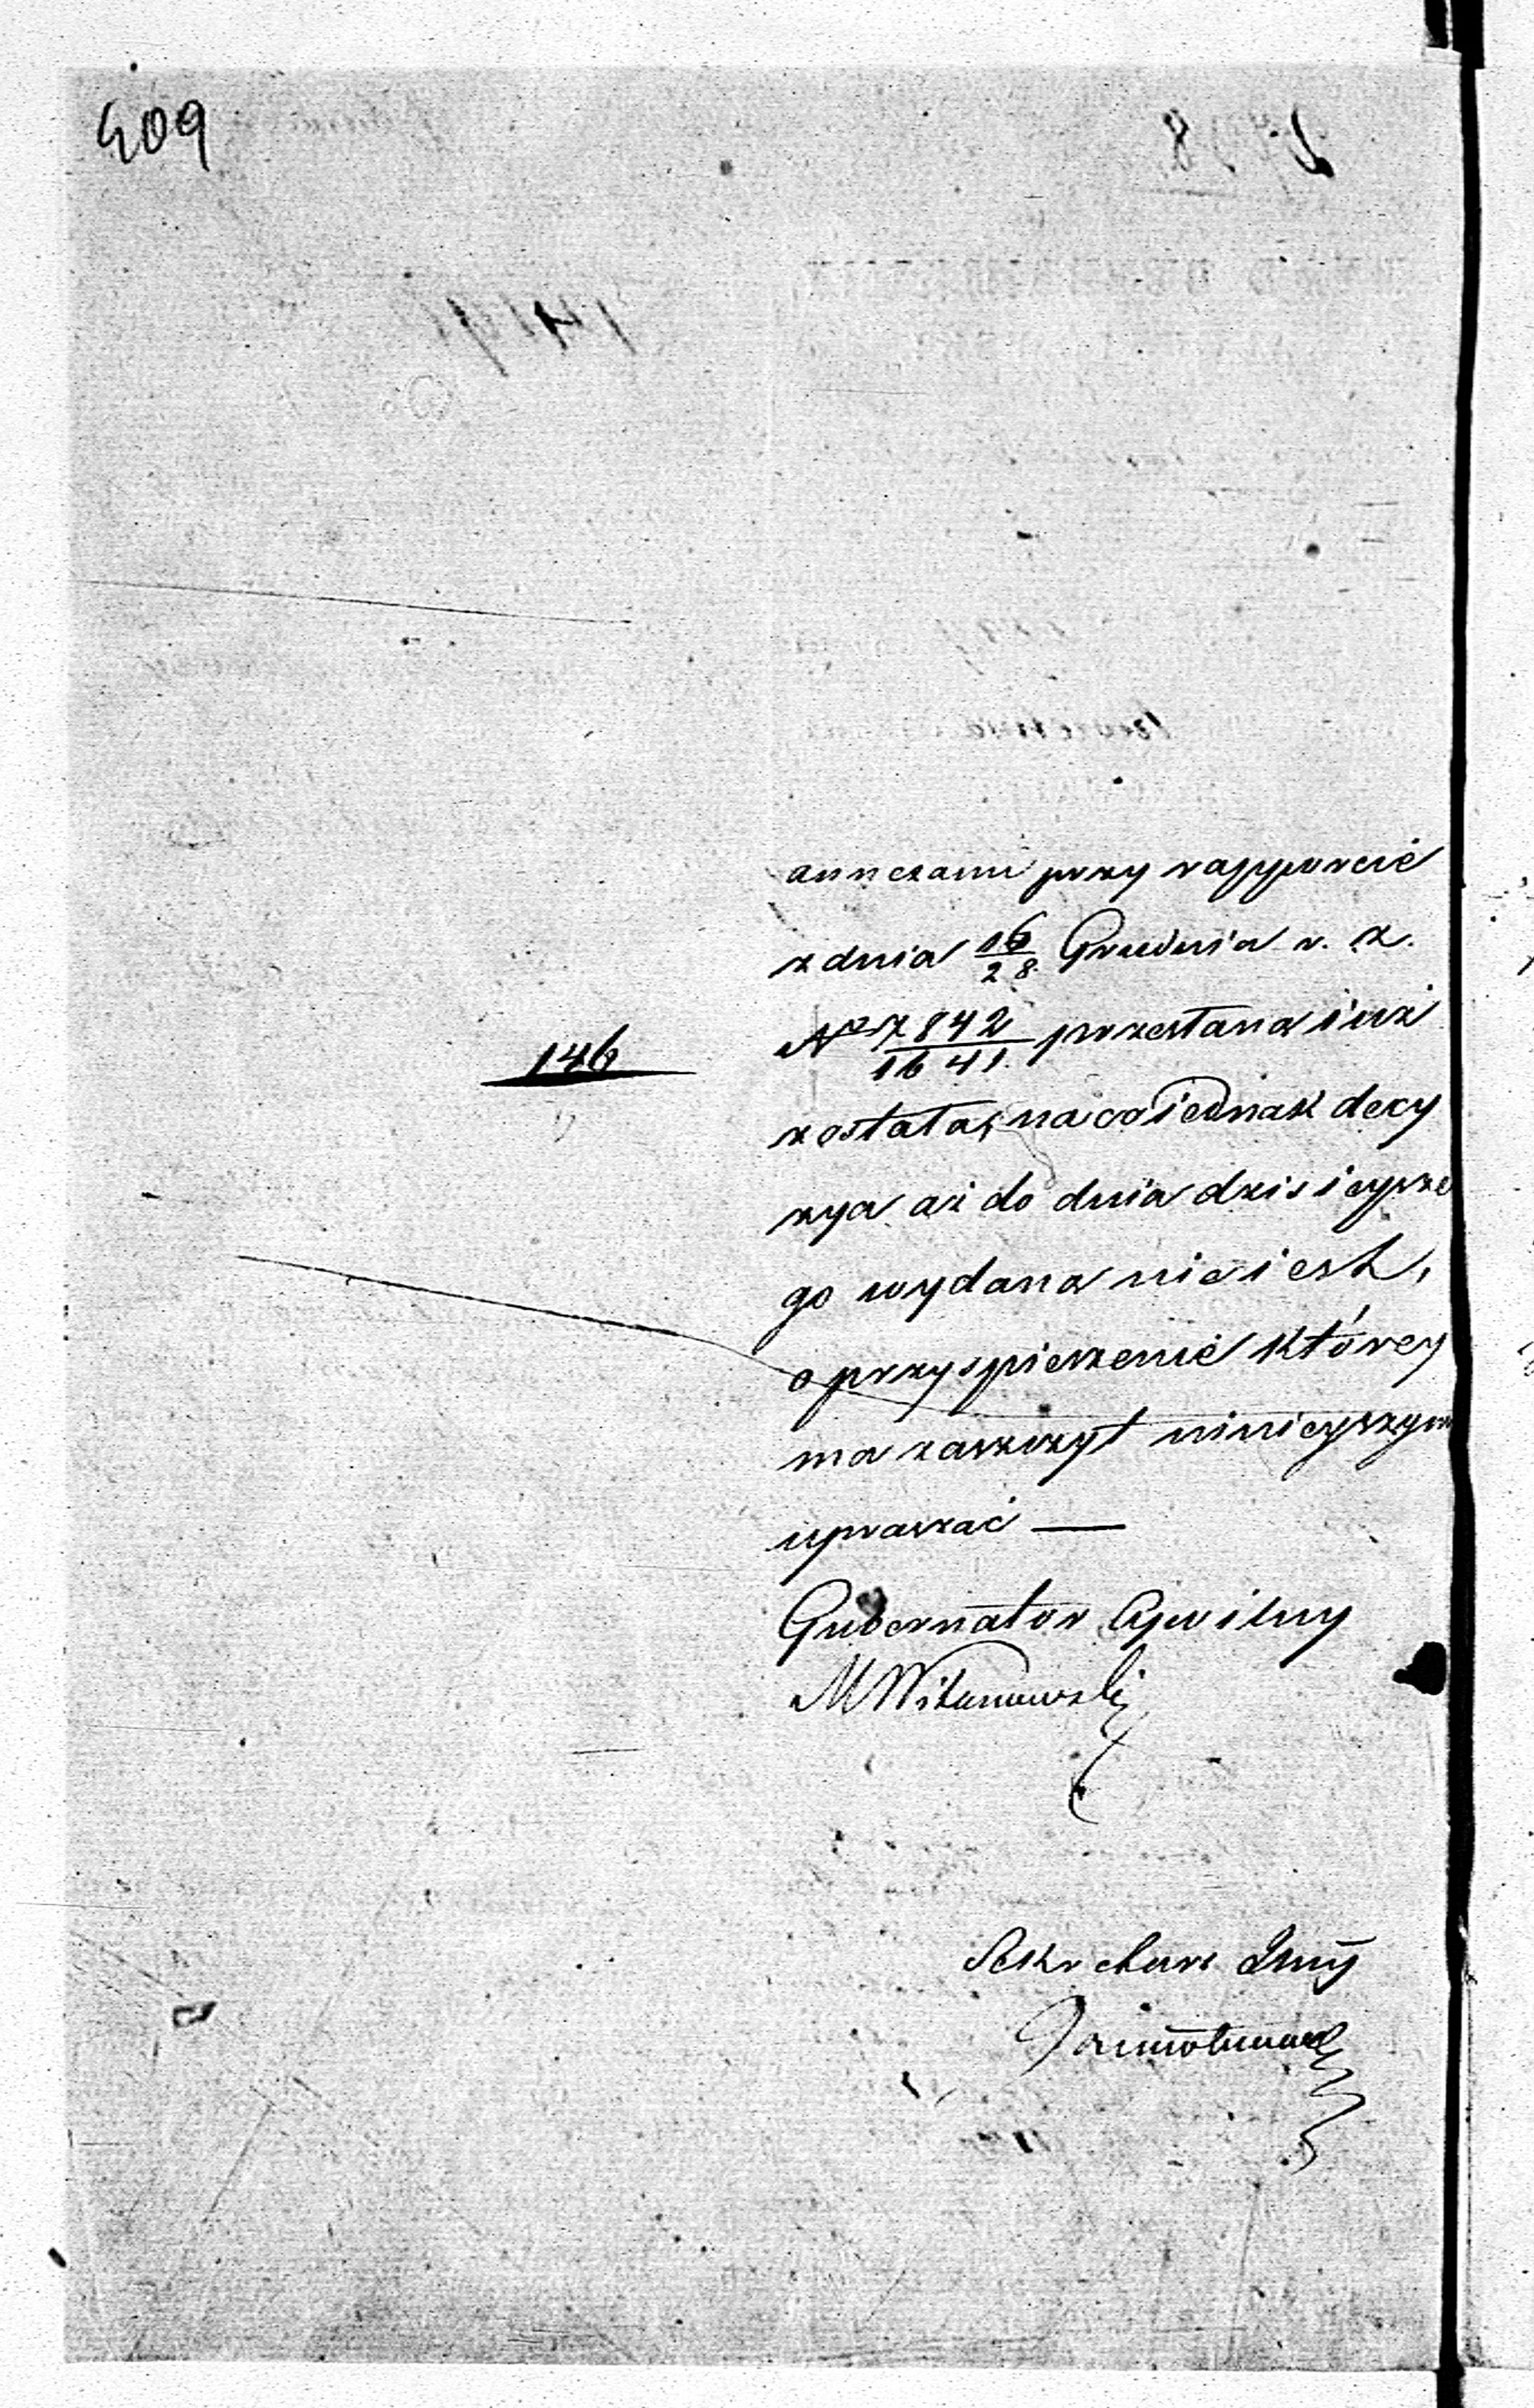 409
annexami przy rapporcie
z dnia 16/28 Grudnia r. z.
No 7842/1641. przesłana iuż
146
została, na co iednak decy
zya aż do dnia dzisieysze
go wydana nie iest,
o przyspieszenie którey
ma zaszczyt ninieyszym
upraszać —
Gubernator Cywilny
Sekretarz